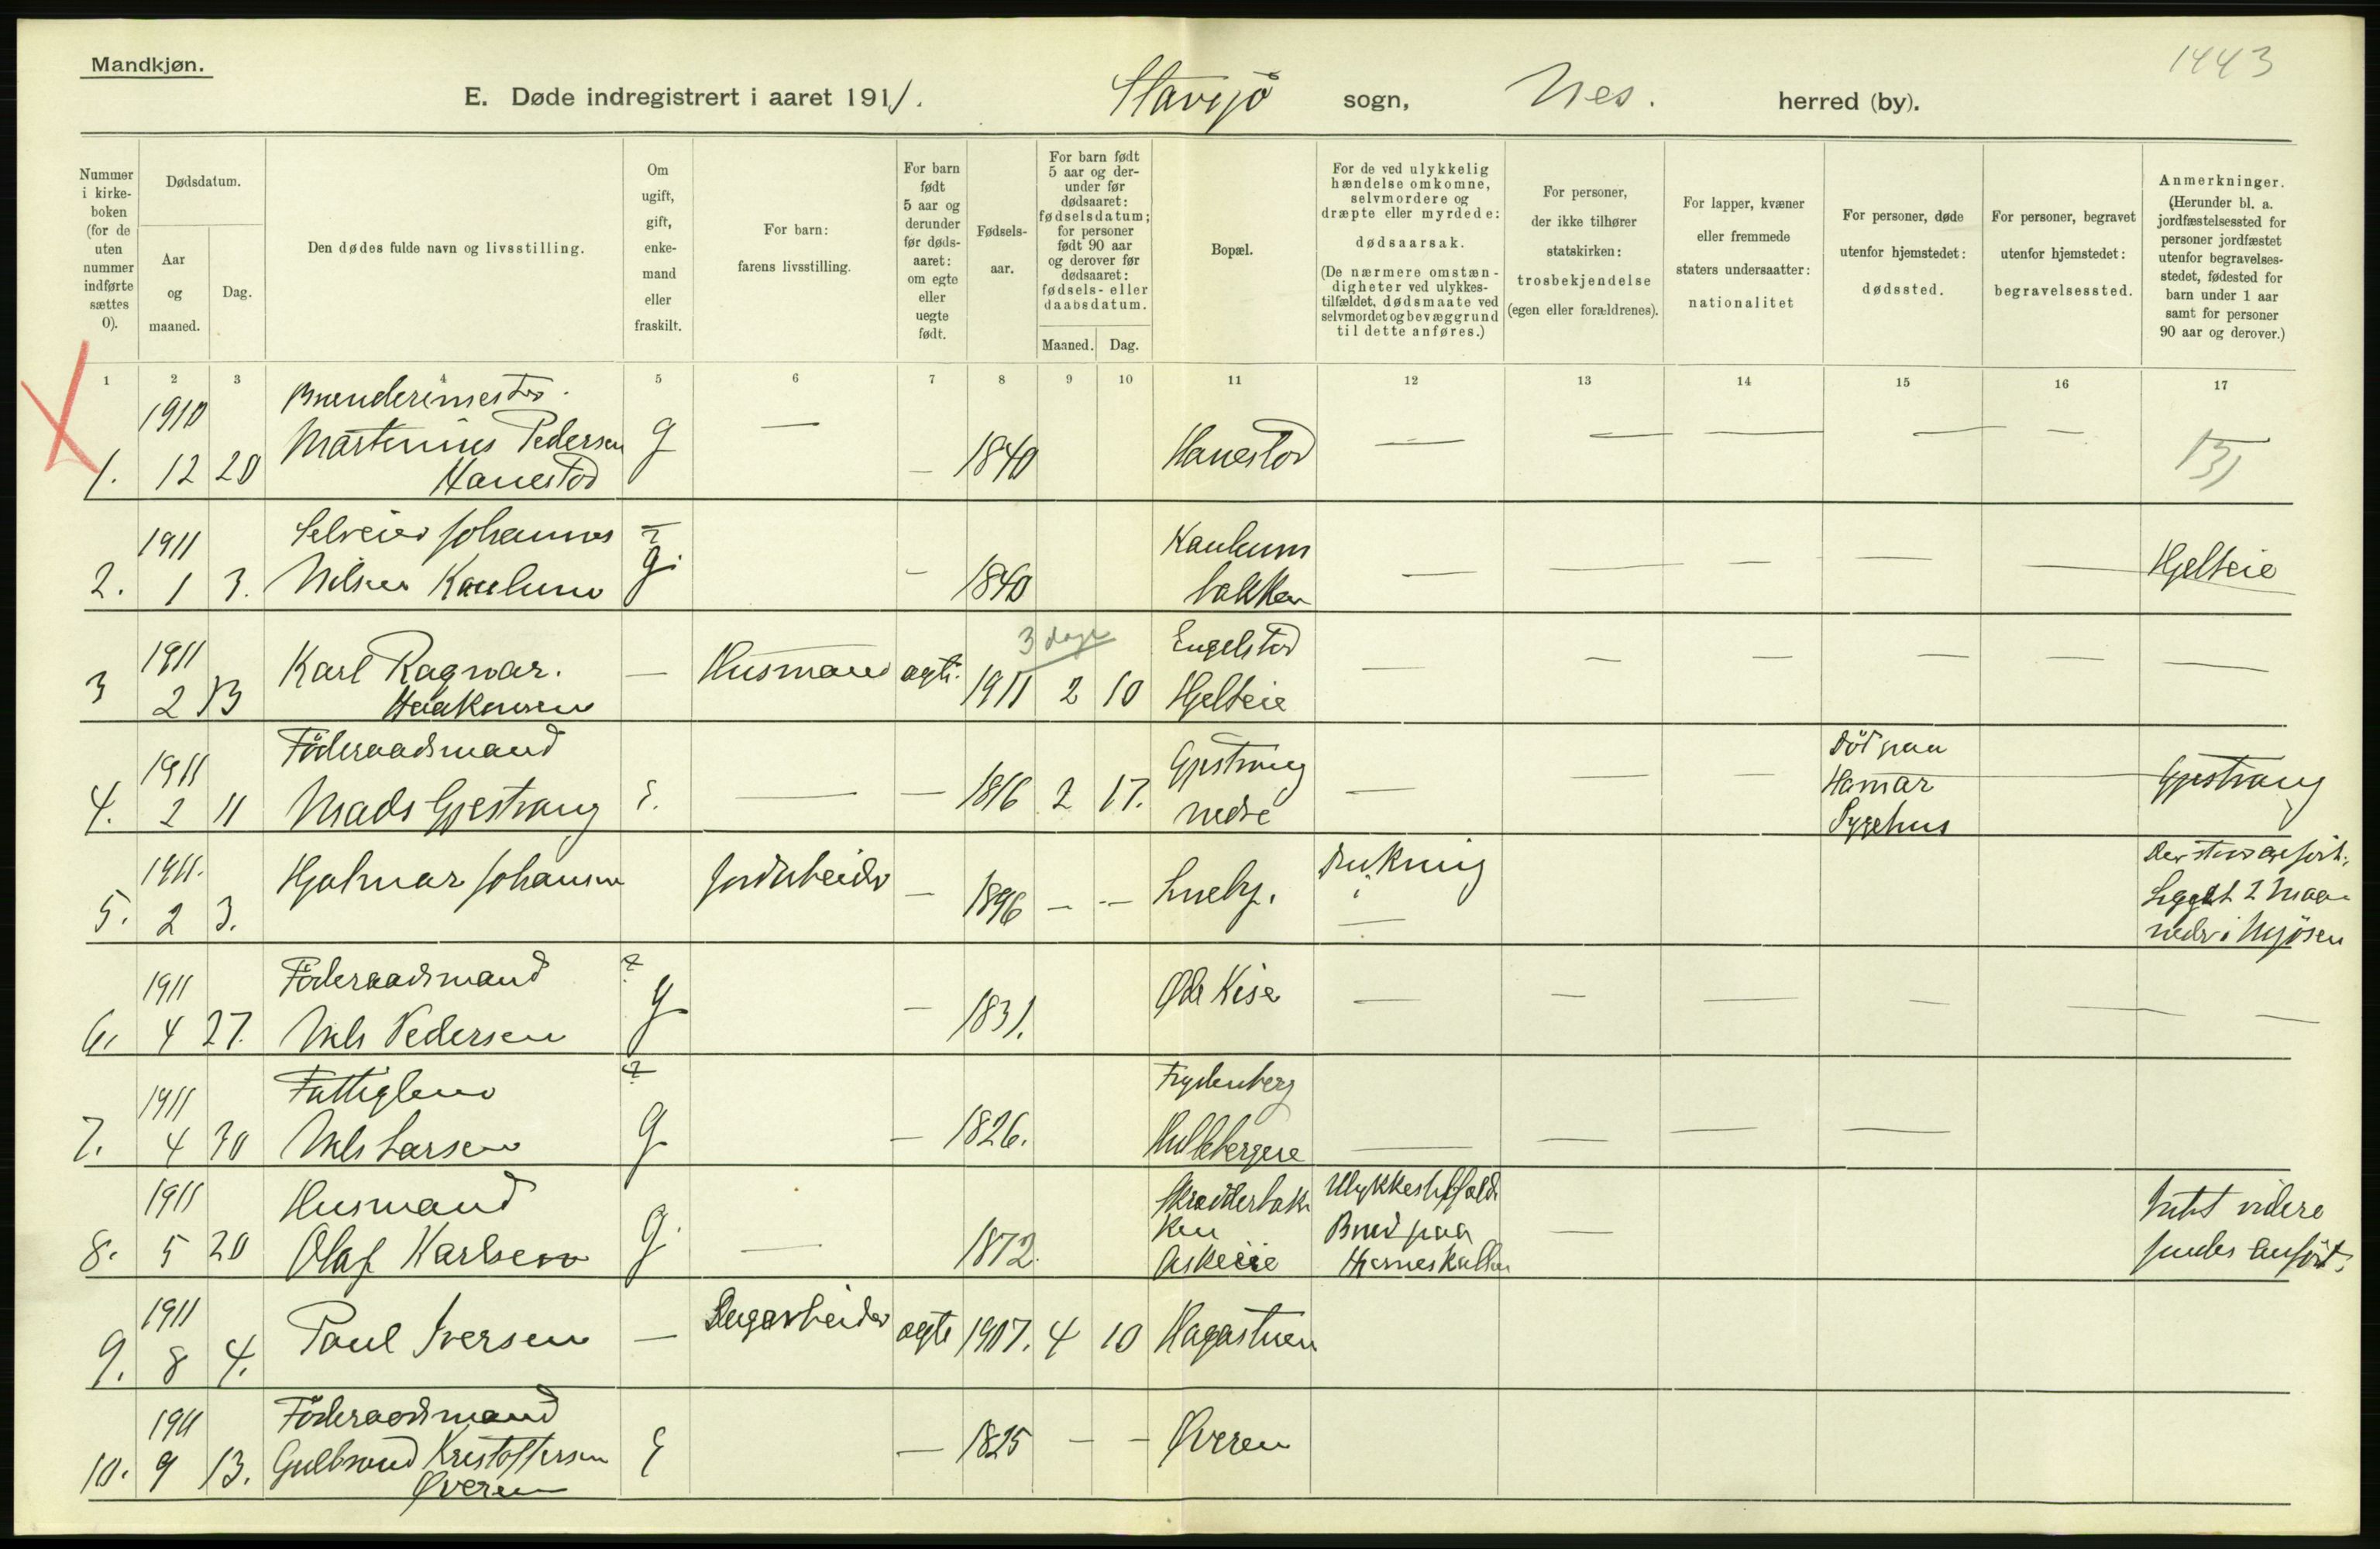 Mandkjøn.
1443
E. Døde indregistrert i aaret 1911. Stavsjö sogn, Nes. herred (by).
Nummer i kirke- boken (for de uten nummer indførte sættes 0).
Dødsdatum.
Aar og maaned.
Dag.
Den dødes fulde navn og livsstilling.
Om ugift, gift, enke- mand eller fraskilt.
For barn: farens livsstilling.
For barn født 5 aar og derunder før døds- aaret: om egte eller uegte født.
Fødsels- aar.
For barn født 5 aar og der- under før dødsaaret: fødselsdatum; for personer født 90 aar og derover før dødsaaret: fødsels- eller daabsdatum.
Maaned. Dag.
Bopæl.
For de ved ulykkelig hændelse omkomne, selvmordere og dræpte eller myrdede: dødsaarsak. (De nærmere omstæn- digheter ved ulykkes- tilfældet, dødsmaate ved selvmordet og bevæggrund til dette anføres.)
For personer, der ikke tilhører statskirken: trosbekjendelse (egen eller forældrenes).
For lapper, kvæner eller fremmede staters undersaatter: nationalitet
For personer, døde utenfor hjemstedet: dødssted.
For personer, begravet utenfor hjemstedet: begravelsessted.
Anmerkninger. (Herunder bl. a. jordfæstelsessted for personer jordfæstet utenfor begravelses- stedet, fødested for barn under 1 aar samt for personer 90 aar og derover.)
1 2 3 4 5 6 7 8 9 10 11 12 13 14 15 16 17
1910
Martinius Pedersen g — — — — — —
1. 12 20 Hanestad — 1840 Hanestad
1911 Selveier Johannes ? Kaulum
2. 1 3. Nilsen Kaulum g. — 1840 bakken — — — — — Hjelteie
1911 3 dage Engelstad
3 2 13 Karl Ragnvar. — Husmand ægte 1911 2 10 Hjelteie — — — — — —
Haakensen
1911 Föderaadsmand Gjestvang Död paa
4. 2 11 Mads Gjestvang E. — — 1816 2 17. nedre — — — Hamar — Gjestvang
Sygehus
1911. Hjalmar Johansen Jordarbeider Drukning
5. 2 3. — 1896 — — Lueby. —
Legget 2 Maa-
neder i Mjösen
1911 Föderaadsmand ?
6. 4 27. Nels Pedersen g — 1831. Øde Kise — — — — — —
1911 Fattiglem ? Frydenberg
7. 4 30 Nels Larsen g — 1826. — — — —
1911 Husmand Skrædderbak- Ulykkestilfælde Intet videre
8. 5 20 Olaf Karlsen g. — 1872. ken Brud paa — findes anført.
Askeeie Hjerneskallen
1911
9. 8 4. Paul Iversen — Dagarbeider ægte 1907. 4 10 Hagastuen
1911 Föderaadsmand
10. 9 13. Gulbrand Kristoffersen E — 1825 — — Øveren
Øveren